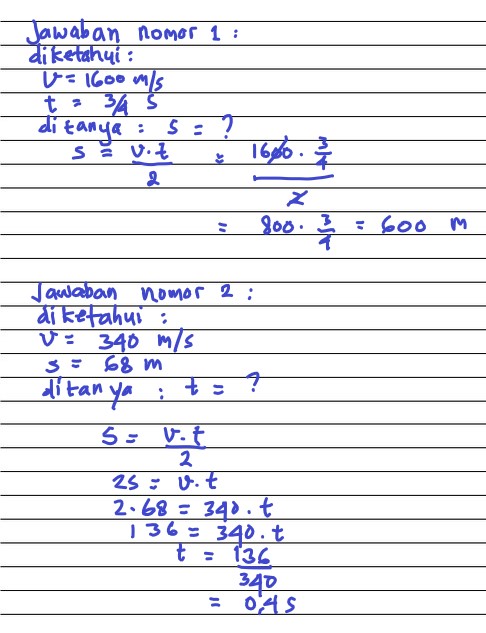 Jawaban nomor 1 :
diketahui :
v = 1600 m/s
t = 3/4 s
ditanya : s = ?
s = v.t/2 = 1600 . 3/4 / 2
= 800 . 3/4 = 600 m
Jawaban nomor 2 :
diketahui :
v = 340 m/s
s = 68 m
ditanya : t = ?
s = v.t/2
2s = v.t
2.68 = 340.t
136 = 340.t
t = 136/340
= 0,4 s